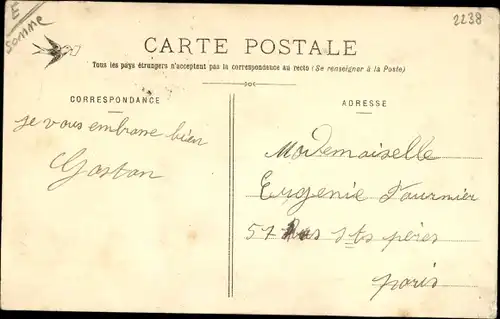 E
Somme
2238
CARTE POSTALE
Tous les pays étrangers n'acceptent pas la correspondance au recto (Se renseigner à la Poste)
CORRESPONDANCE
ADRESSE
je vous embrasse bien
Gaston
Mademoiselle
Eugenie Fournier
57 Rue Sts pères
paris